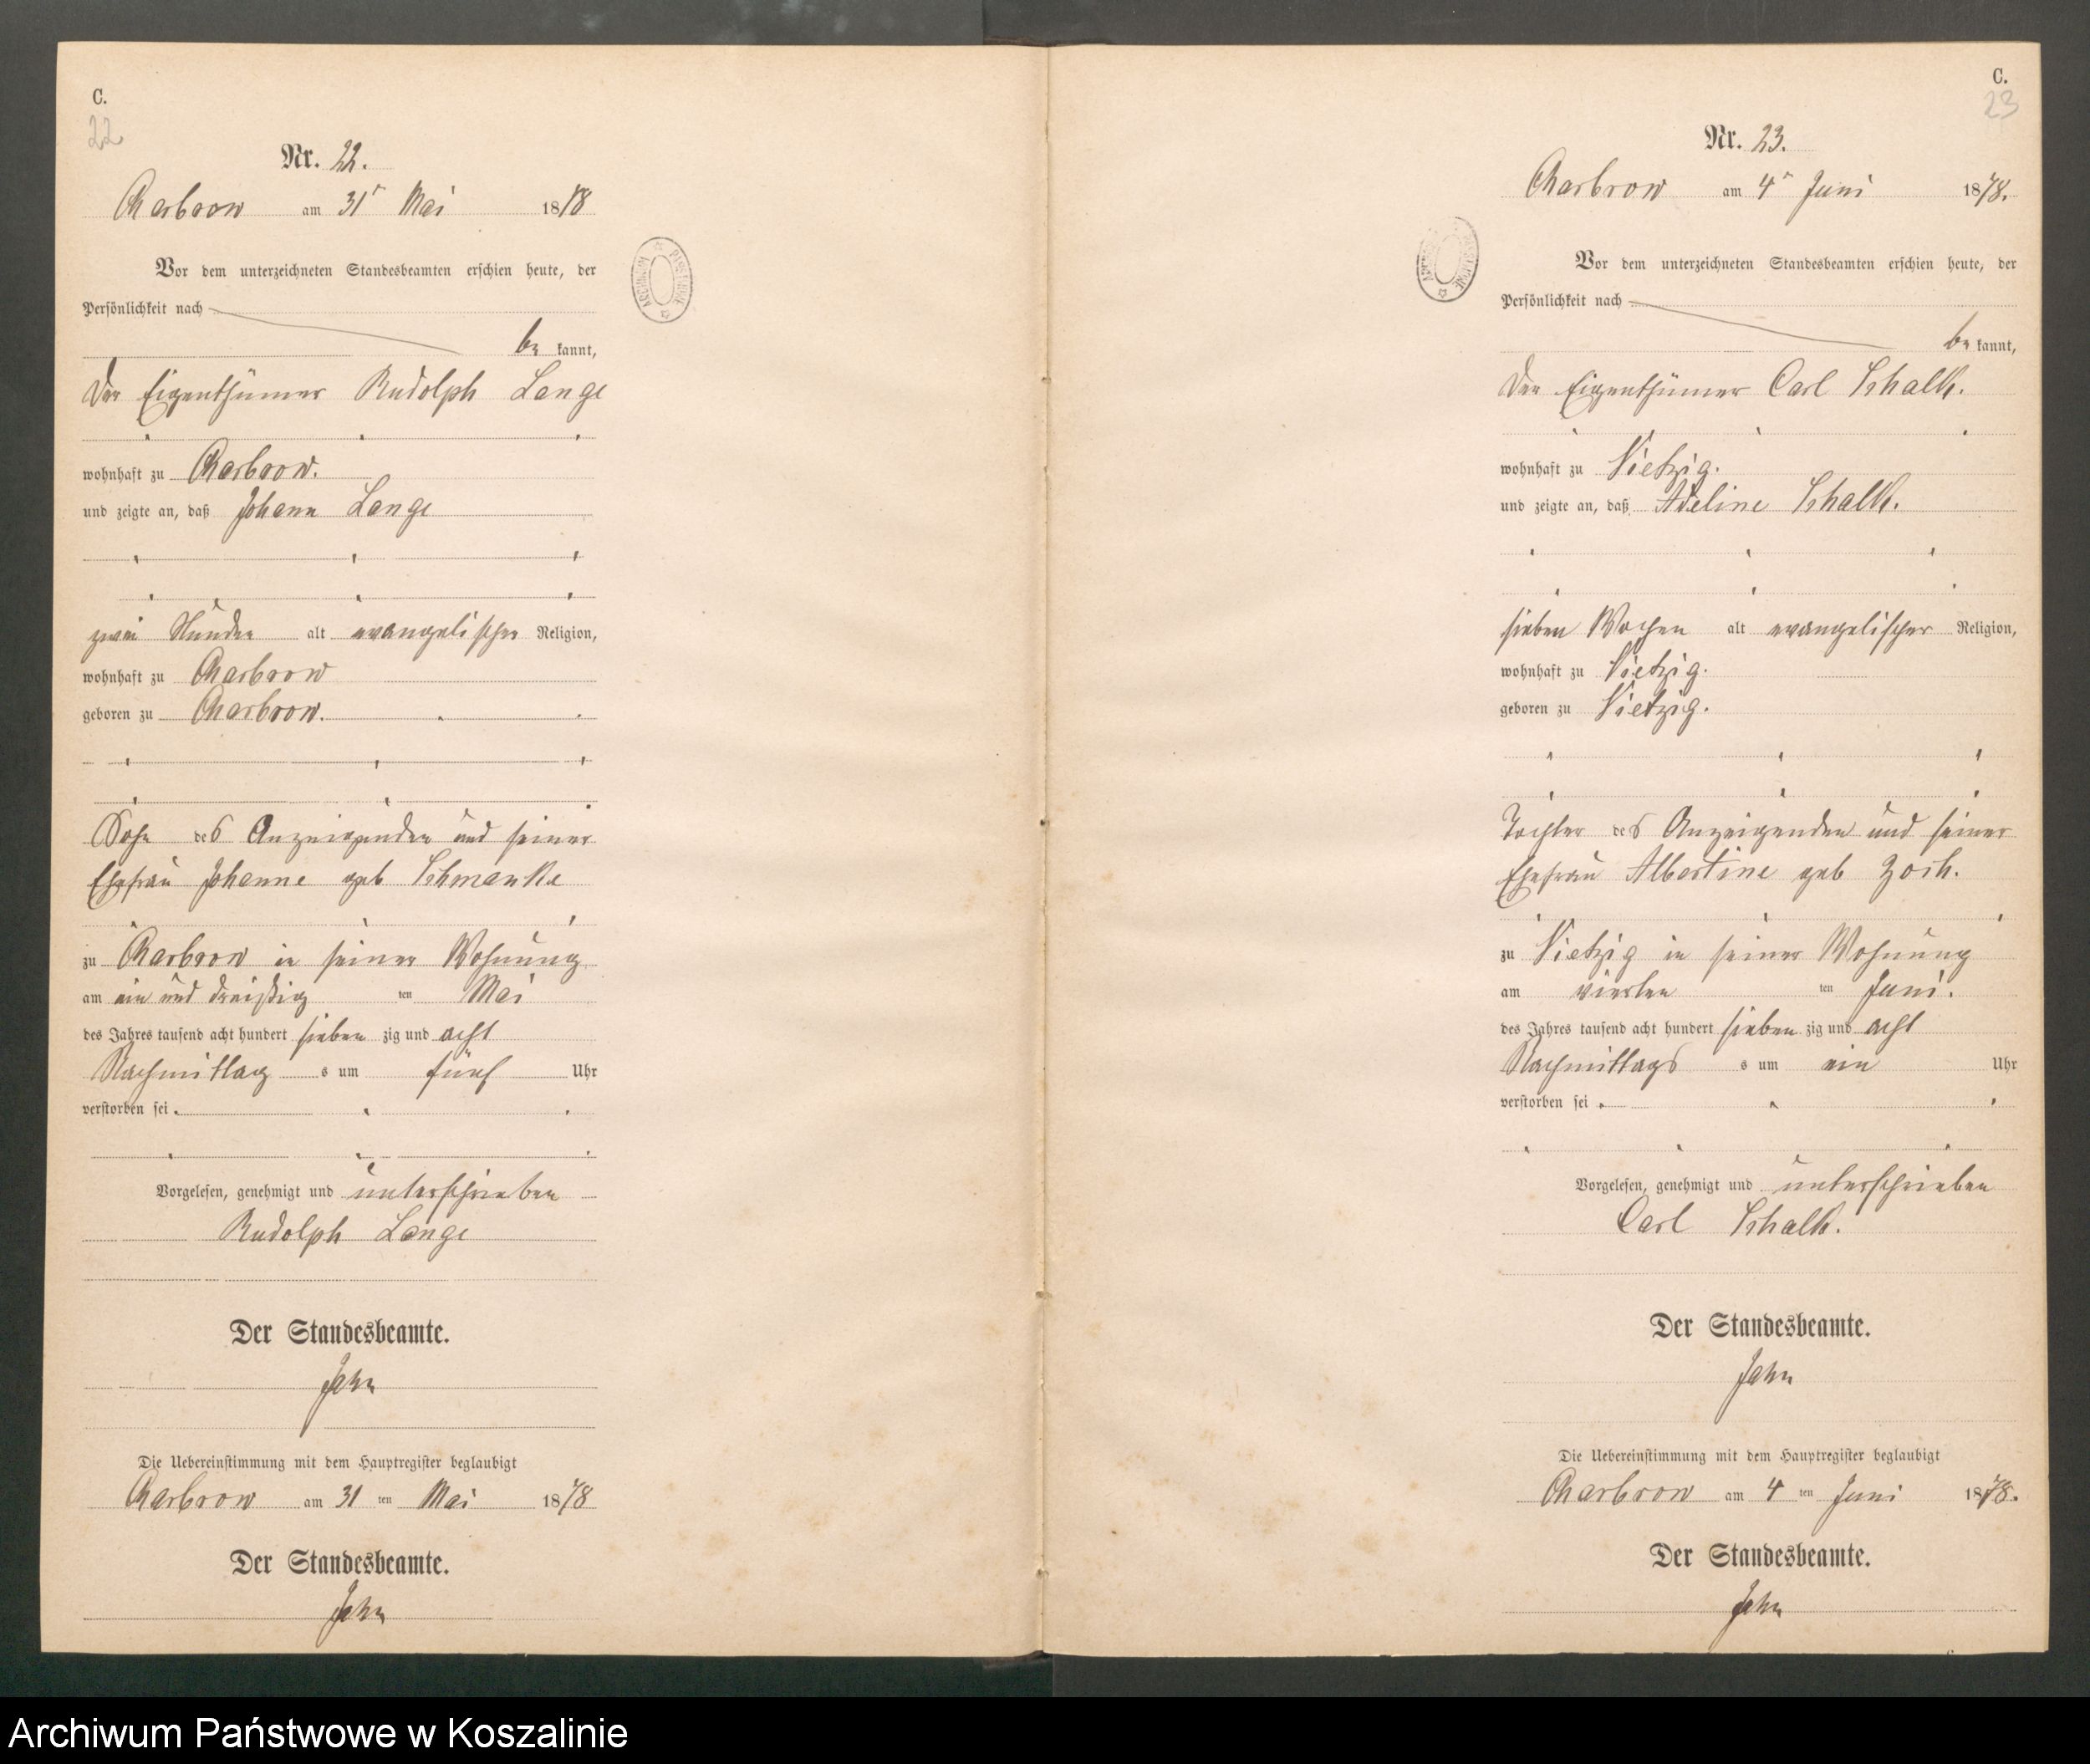 C.
22
Nr. 22.
Charbrow am 31t Mai 1878
Vor dem unterzeichneten Standesbeamten erschien heute, der
Persönlichkeit nach
be kannt,
Der Eigenthümer Rudolph Lange
wohnhaft zu Charbrow.
und zeigte an, daß Johann Lange
zwei Stunden alt evangelischer Religion,
wohnhaft zu Charbrow
geboren zu Charbrow.
Sohn des Anzeigenden und seiner
Ehefrau Johanne geb Schmanke
zu Charbrow in seiner Wohnung
am ein und dreißig ten Mai
des Jahres tausend acht hundert sieben zig und acht
Nachmittag s um fünf Uhr
verstorben sei
Vorgelesen, genehmigt und unterschrieben
Rudolph Lange
Der Standesbeamte.
Jahn
Die Uebereinstimmung mit dem Hauptregister beglaubigt
Charbrow am 31 ten Mai 1878
Der Standesbeamte.
Jahn
C.
23
Nr. 23.
Charbrow am 4t Juni 1878.
Vor dem unterzeichneten Standesbeamten erschien heute, der
Persönlichkeit nach
be kannt,
Der Eigenthümer Carl Schalk.
wohnhaft zu Vietzig.
und zeigte an, daß Adeline Schalk.
sieben Wochen alt evangelischer Religion,
wohnhaft zu Vietzig.
geboren zu Vietzig.
Tochter des Anzeigenden und seiner
Ehefrau Albertine geb Zoch.
zu Vietzig in seiner Wohnung
am vierten ten Juni.
des Jahres tausend acht hundert sieben zig und acht
Nachmittags s um ein Uhr
verstorben sei
Vorgelesen, genehmigt und unterschrieben
Carl Schalk.
Der Standesbeamte.
Jahn
Die Uebereinstimmung mit dem Hauptregister beglaubigt
Charbrow am 4 ten Juni 1878.
Der Standesbeamte.
Jahn
Archiwum Państwowe w Koszalinie